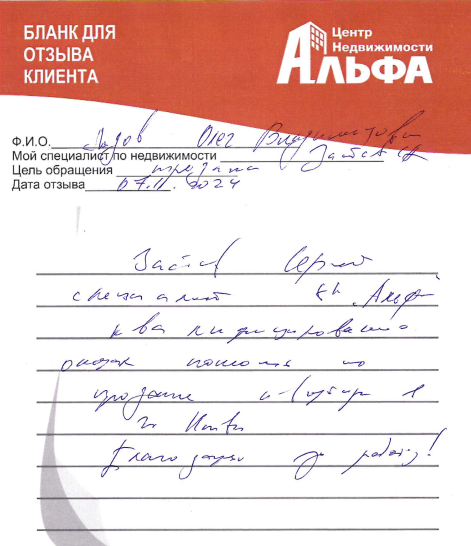 БЛАНК ДЛЯ
ОТЗЫВА
КЛИЕНТА
Центр
Недвижимости
АЛЬФА
Ф.И.О. Олег Владимирович
Мой специалист по недвижимости
Цель обращения продажа
Дата отзыва 07.11.2024
Сергей
специалист АН "Альфа"
квалифицированно
оказал помощь по
продаже квартиры в
Благодарен за работу!